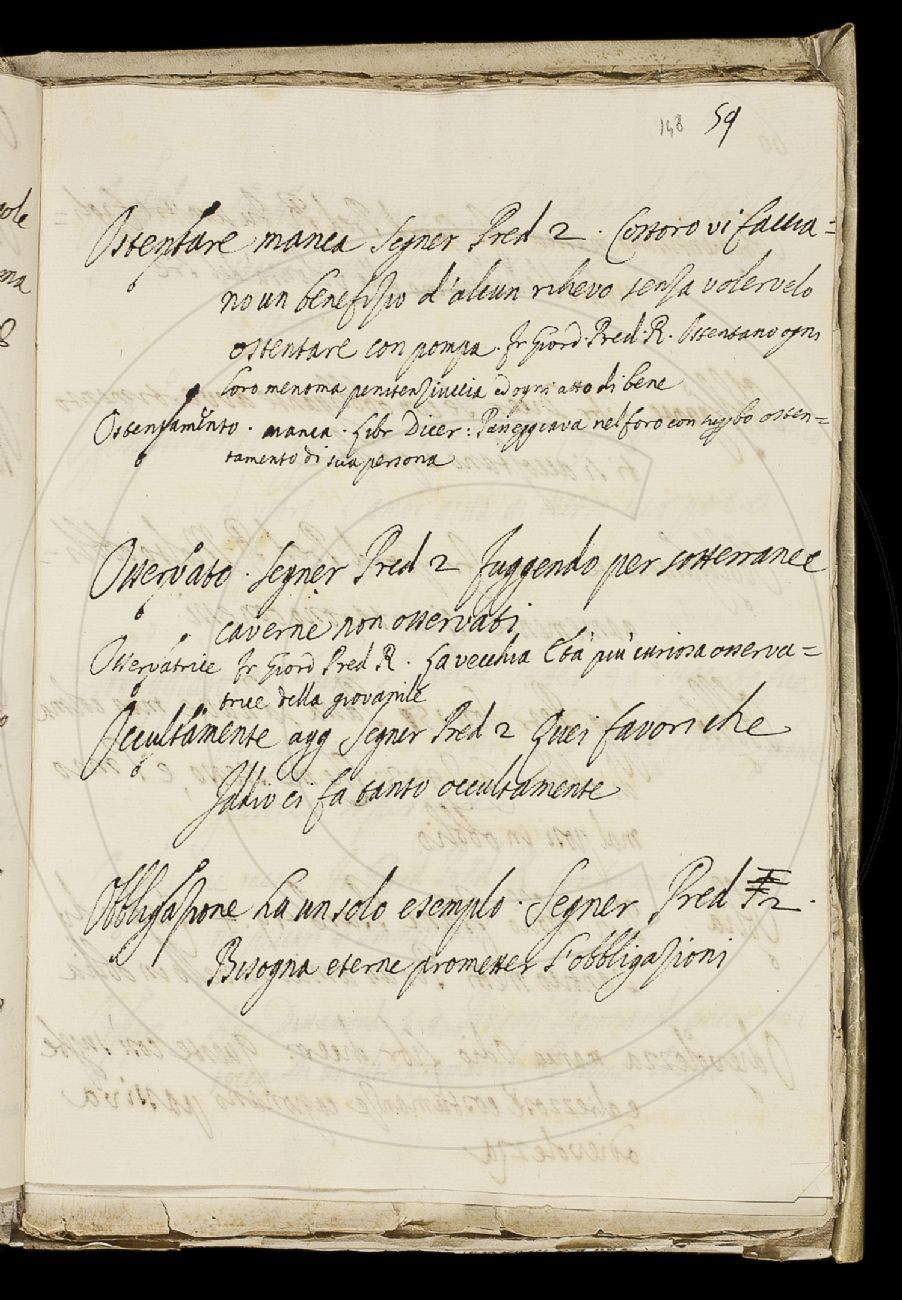 148 59
Ostentare manca Segner Pred 2. Costoro vi faccia=
no un benefizio d'alcun rilievo senza volervelo
ostentare con pompa. Fr Giord. Pred. R. Ostentano ogni
loro menoma penitenziuccia ed ogni atto di bene
Ostentamento. manca. Libr Dicer: Paneggiava nel foro con osten=
tamento di sua persona
Osservato. Segner Pred 2 fuggendo per sotterranee
caverne non osservati
Osservatrice Fr Giord Pred R. La vecchia Età più curiosa osserva=
trice della giovanile
Occultamente agg Segner Pred 2 Quei favori che
Iddio ci fa tanto occultamente
Obbligazione ha un solo esemplo. Segner Pred 2.
Bisogna eterne prometter l'obbligazioni